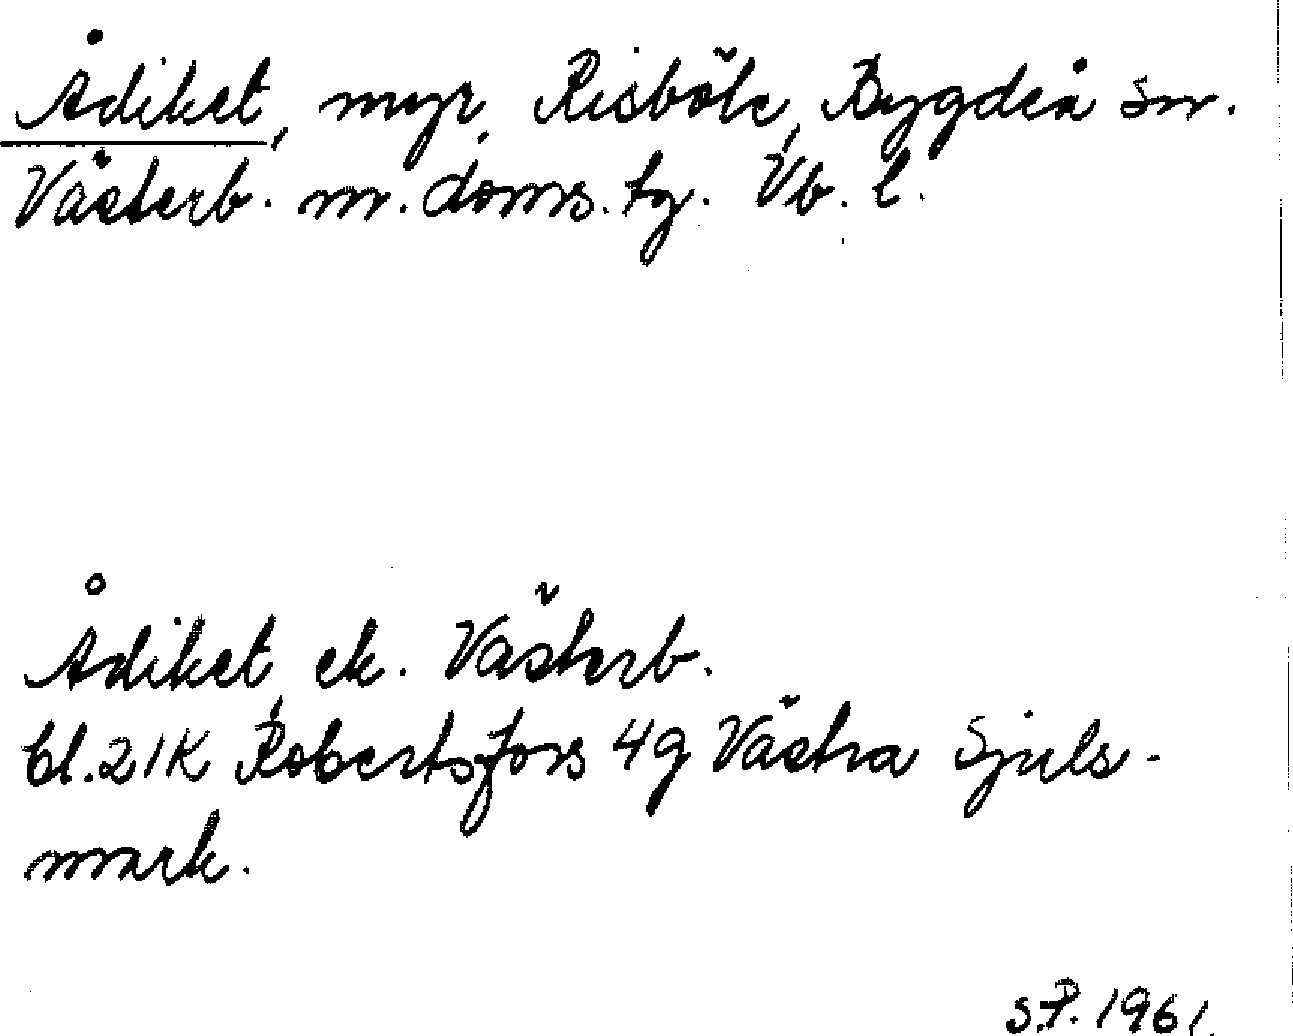 Ådiket, myr, Risböle, Bygdeå sn.
Västerb. m. doms. tg. Vb. l.
Ådiket, ek. Västerb.
bl. 21K Robertsfors 4g Västra Sjuls-
mark.
S.P. 1961.